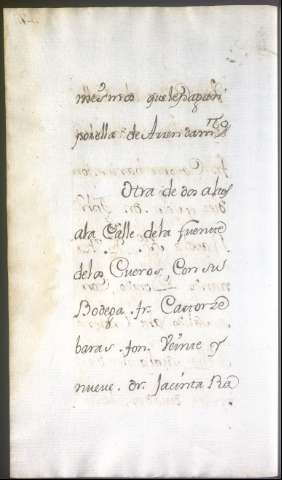 mesmos que le pagan
por ella de Arrendam.to
Otra de dos altos
a la Calle de la fuente
de los Cueros, Con su
Bodega. fr. Catorze
baras. fon. Veinte y
nueve. dr. Jacinta Ria